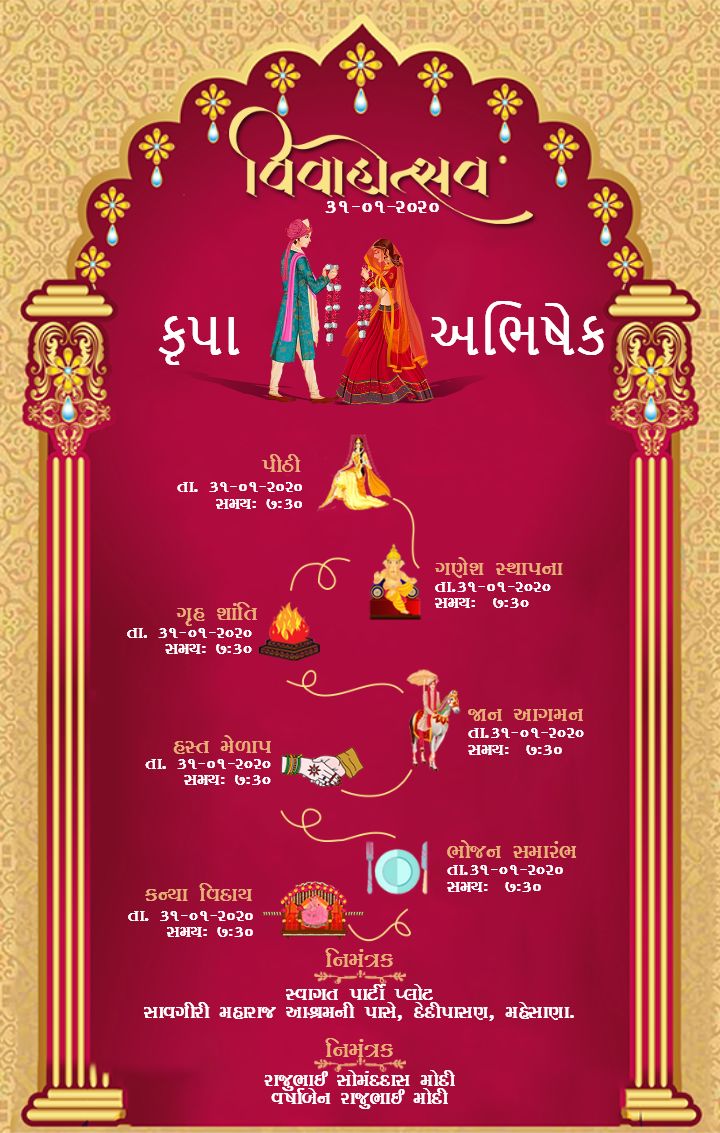 વિવાહોત્સવ
૩૧-૦૧-૨૦૨૦
કૃપા
અભિષેક
પીઠી
તા. ૩૧-૦૧-૨૦૨૦
સમયઃ ૭:૩૦
ગણેશ સ્થાપના
તા.૩૧-૦૧-૨૦૨૦
સમયઃ ૭:૩૦
ગૃહ શાંતિ
તા. ૩૧-૦૧-૨૦૨૦
સમયઃ ૭:૩૦
જાન આગમન
તા.૩૧-૦૧-૨૦૨૦
સમયઃ ૭:૩૦
હસ્ત મેળાપ
તા. ૩૧-૦૧-૨૦૨૦
સમયઃ ૭:૩૦
ભોજન સમારંભ
તા.૩૧-૦૧-૨૦૨૦
સમયઃ ૭:૩૦
કન્યા વિદાય
તા. ૩૧-૦૧-૨૦૨૦
સમયઃ ૭:૩૦
નિમંત્રક
સ્વાગત પાર્ટી પ્લોટ
સાવગીરી મહારાજ આશ્રમની પાસે, દેદીપાસણ, મહેસાણા.
નિમંત્રક
રાજુભાઈ સોમંદદાસ મોદી
વર્ષાબેન રાજુભાઈ મોદી